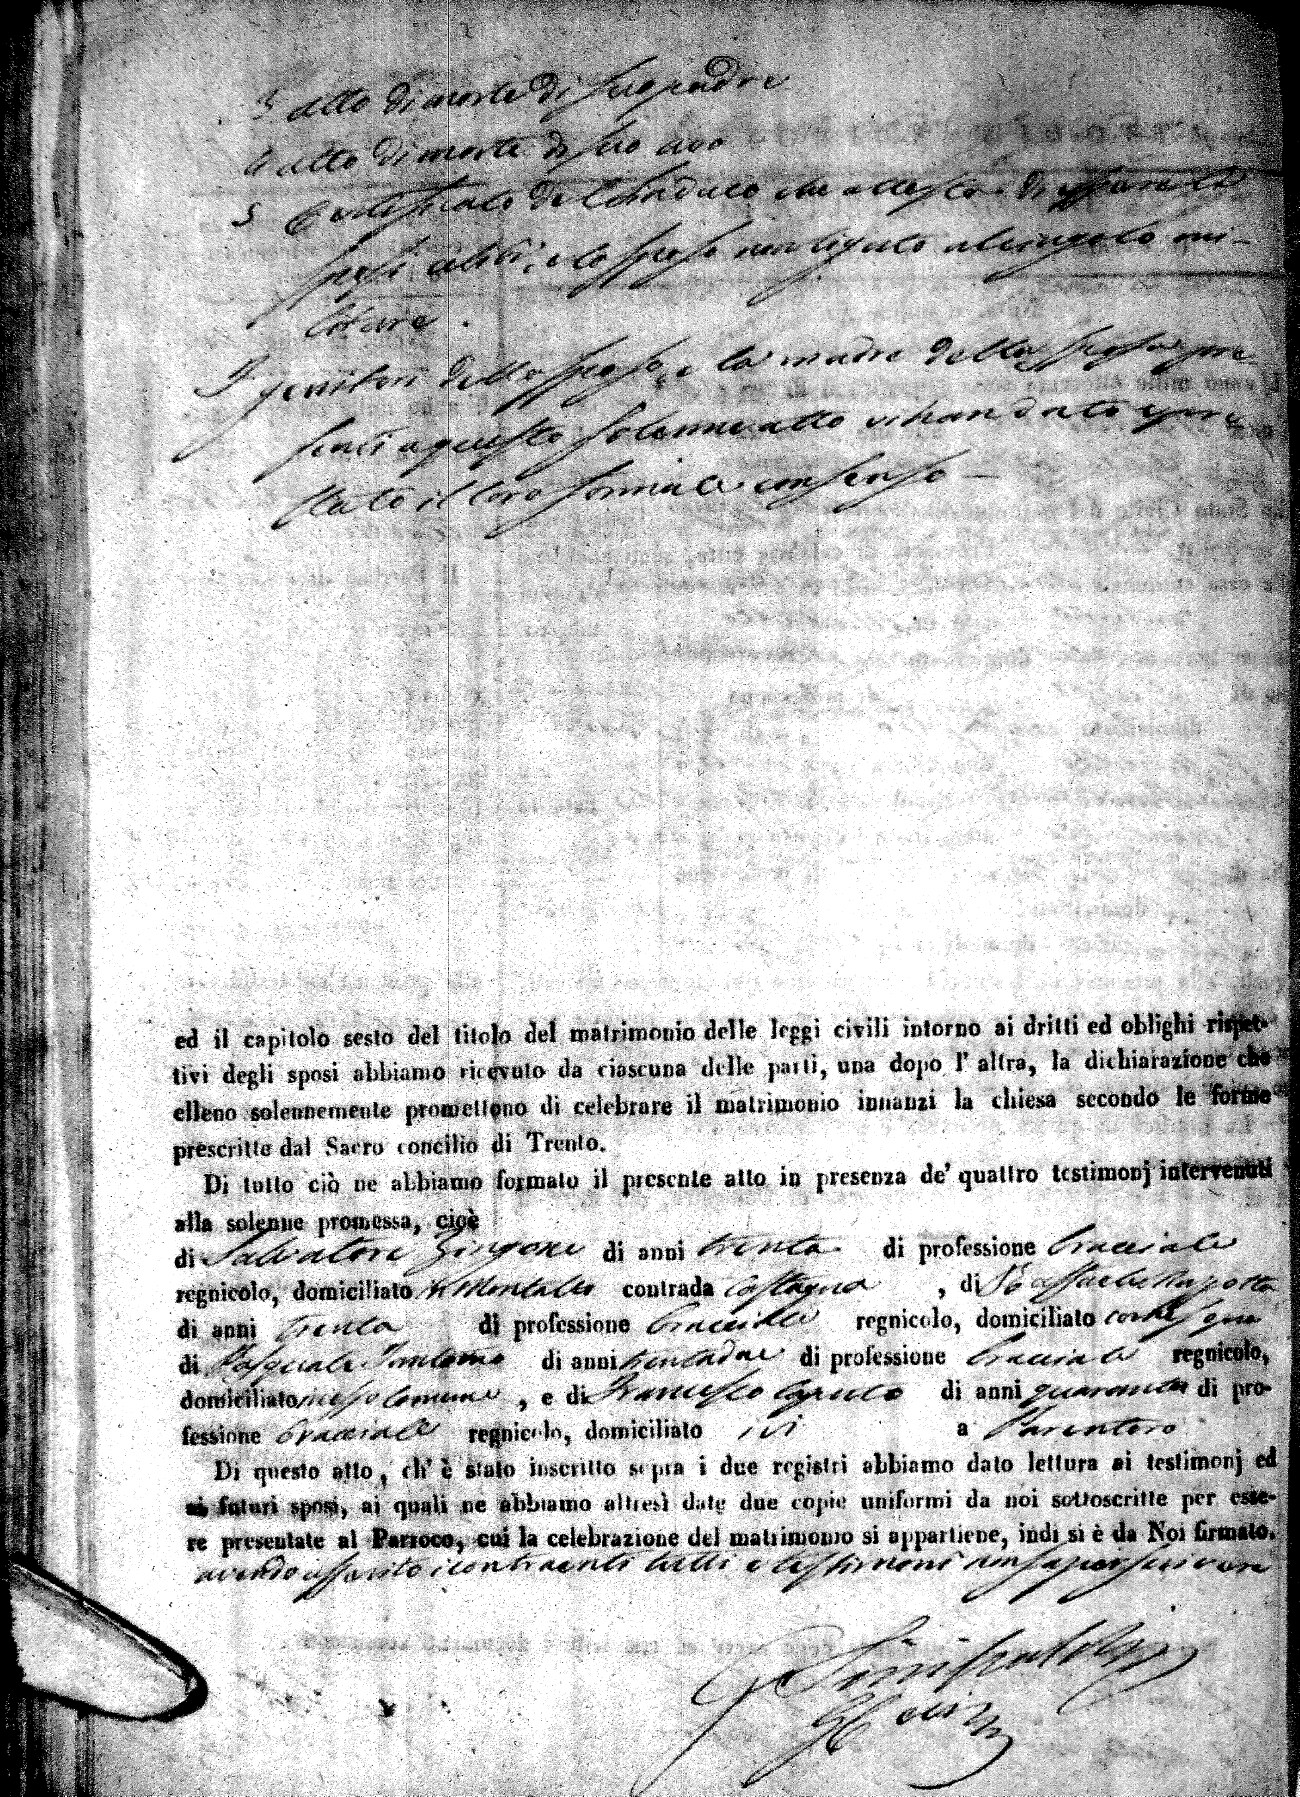 3 Atto di morte di suo padre
4 Atto di morte di suo avo
5 Certificato del Sindaco che attesta di essere li
sposi celibi, e lo sposo non ligato al cingolo mi-
litare.
I genitori dello sposo, e la madre della sposa pre
senti a questo solenne atto vi han dato e pre
stato il loro formale consenso —
ed il capitolo sesto del titolo del matrimonio delle leggi civili intorno ai dritti ed oblighi rispet-
tivi degli sposi abbiamo ricevuto da ciascuna delle parti, una dopo l' altra, la dichiarazione che
elleno solennemente promettono di celebrare il matrimonio innanzi la chiesa secondo le forme
prescritte dal Sacro concilio di Trento.
Di tutto ciò ne abbiamo formato il presente atto in presenza de' quattro testimonj intervenuti
alla solenne promessa, cioè
di Salvatore Zingone di anni trenta di professione bracciale
regnicolo, domiciliato in Montalto contrada Castagna , di Raffaele Mazzotta
di anni trenta di professione bracciale regnicolo, domiciliato come sopra
di Pasquale di anni trentadue di professione bracciale regnicolo,
domiciliato in esso comune , e di Francesco Caputo di anni quaranta di pro-
fessione bracciale regnicolo, domiciliato ivi a Parantoro
Di questo atto, ch' è stato inscritto sopra i due registri abbiamo dato lettura ai testimonj ed
ai futuri sposi, ai quali ne abbiamo altresì date due copie uniformi da noi sottoscritte per esse-
re presentate al Parroco, cui la celebrazione del matrimonio si appartiene, indi si è da Noi firmato.
avendo asserito i contraenti tutti e testimoni non saper scrivere